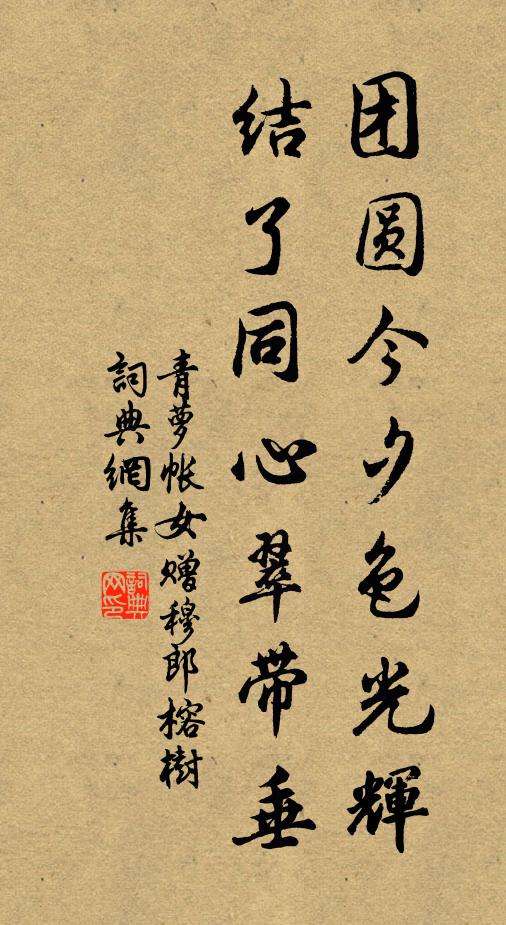 团圆今夕色光輝
结了同心翠带垂
青萝帐女赠穆郎榕樹
詞典網集
詞典网印